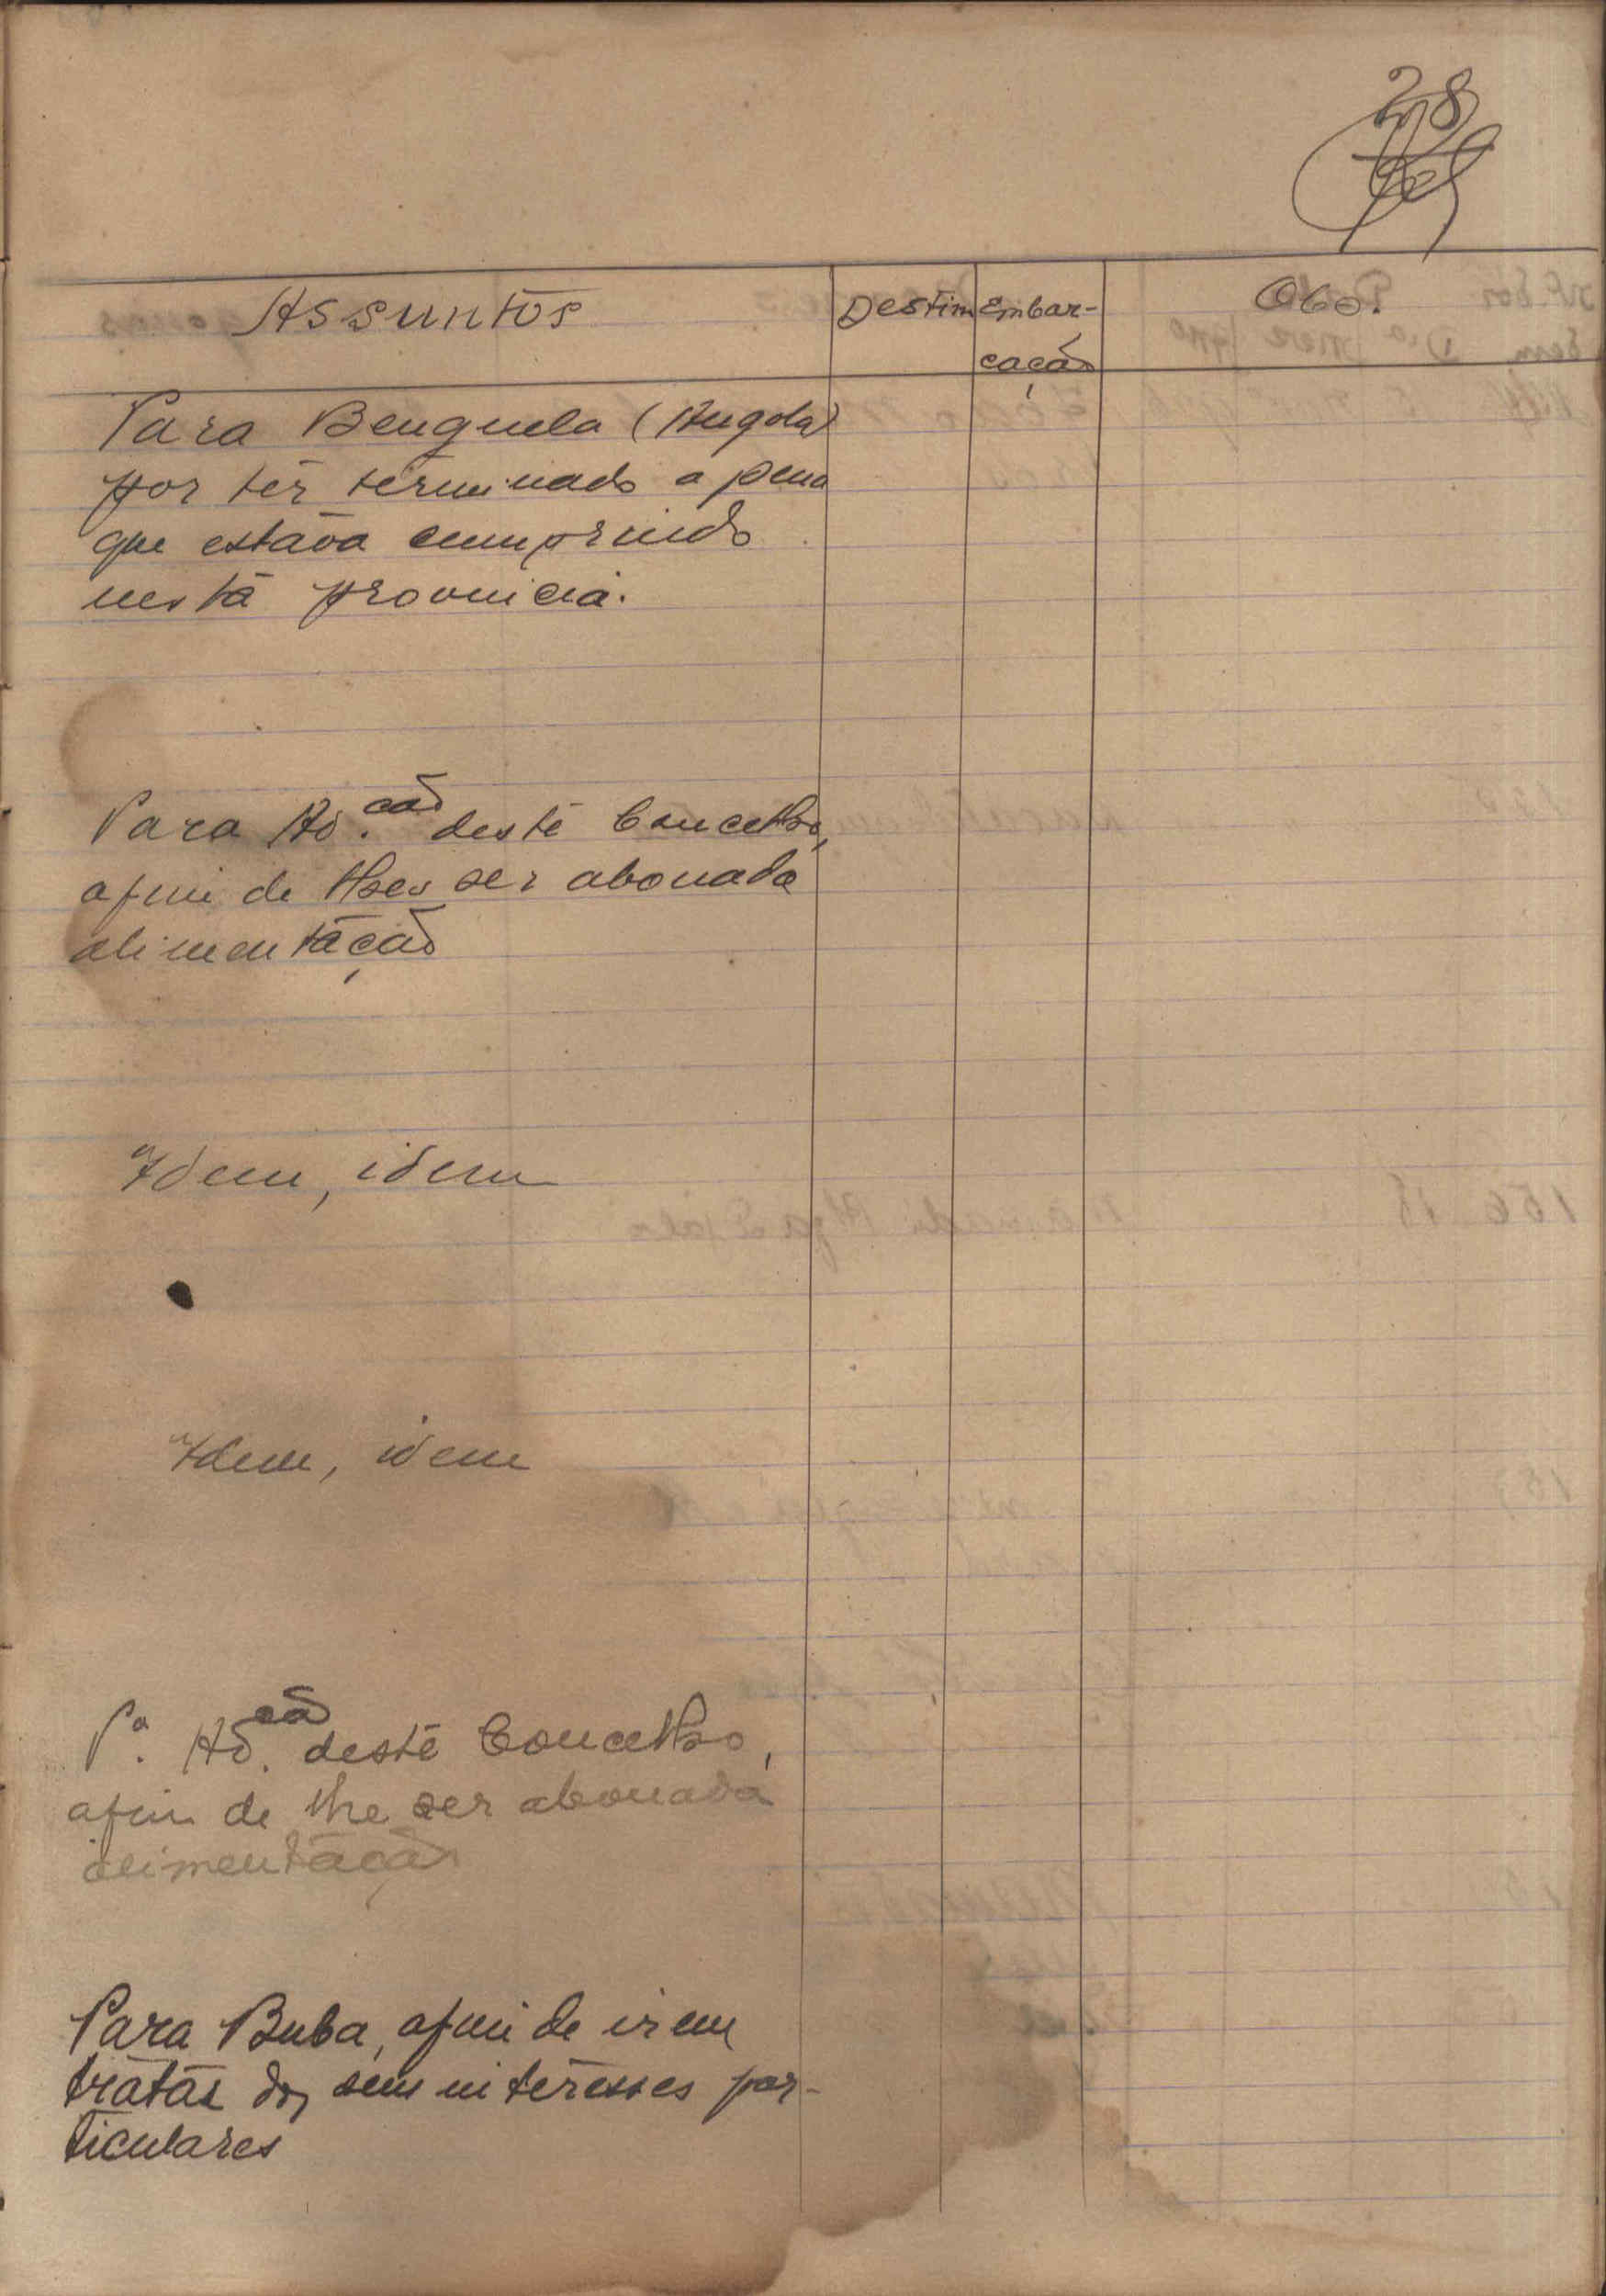 28
Assuntos
Destin
Embar-
cação
Obs.
Para Benguela (Angola)
por ter terminado a pena
que estava cumprindo
nesta provincia.
Para Ad.ção deste Concelho,
afim de lhes ser abonada
alimentação
Idem, idem
Idem, idem
Pª. Ad.ção deste Concelho,
afim de lhe ser abonada
alimentação
Para Buba, afim de irem
tratar dos seus interesses par-
ticulares